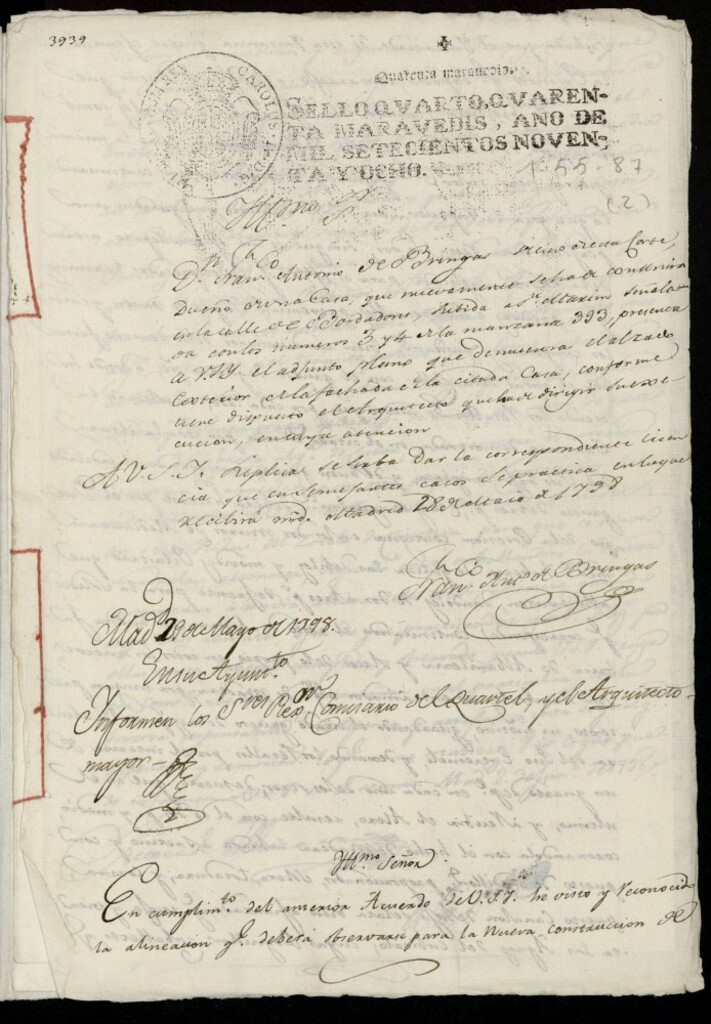 3939
Quarenta maravedis.
CAROLUS
SELLO QVARTO, QVAREN-
TA MARAVEDIS, ANO DE
MIL SETECIENTOS NOVEN-
TA Y OCHO.
1-55-87
(2)
Yllmo Sr
Dn Franco Antonio de Bringas vecino de esta Corte,
Dueño de una Casa, que nuevamente se ha de construir
en la calle de Bordadores, Hermita a Sn Martin señala
da con los numeros 3 y 4 de la manzana 393, presenta
a V.S.Y. el adjunto plano que demuestra el alzado
exterior de la fachada de la citada Casa, conforme
tiene dispuesto el Arquitecto que ha de dirigir su exe-
cucion, en cuya atencion
A V.S.Y. suplica se sirva dar la correspondiente licen
cia que en semejantes casos se practica en lo que
recibirá mrd. Madrid 28 de Maio de 1798
Franco Anto de Bringas
Madd 29 de Mayo de 1798.
En su Ayuntto
Informen los Sres Rexor Comisario del Quartel, y el Arquitecto
mayor-
Yllmo Señor.
En cumplimto del anterior Acuerdo de V.S.Y. he visto y reconocido
la alineacion qe debera observarse para la Nueva construccion de